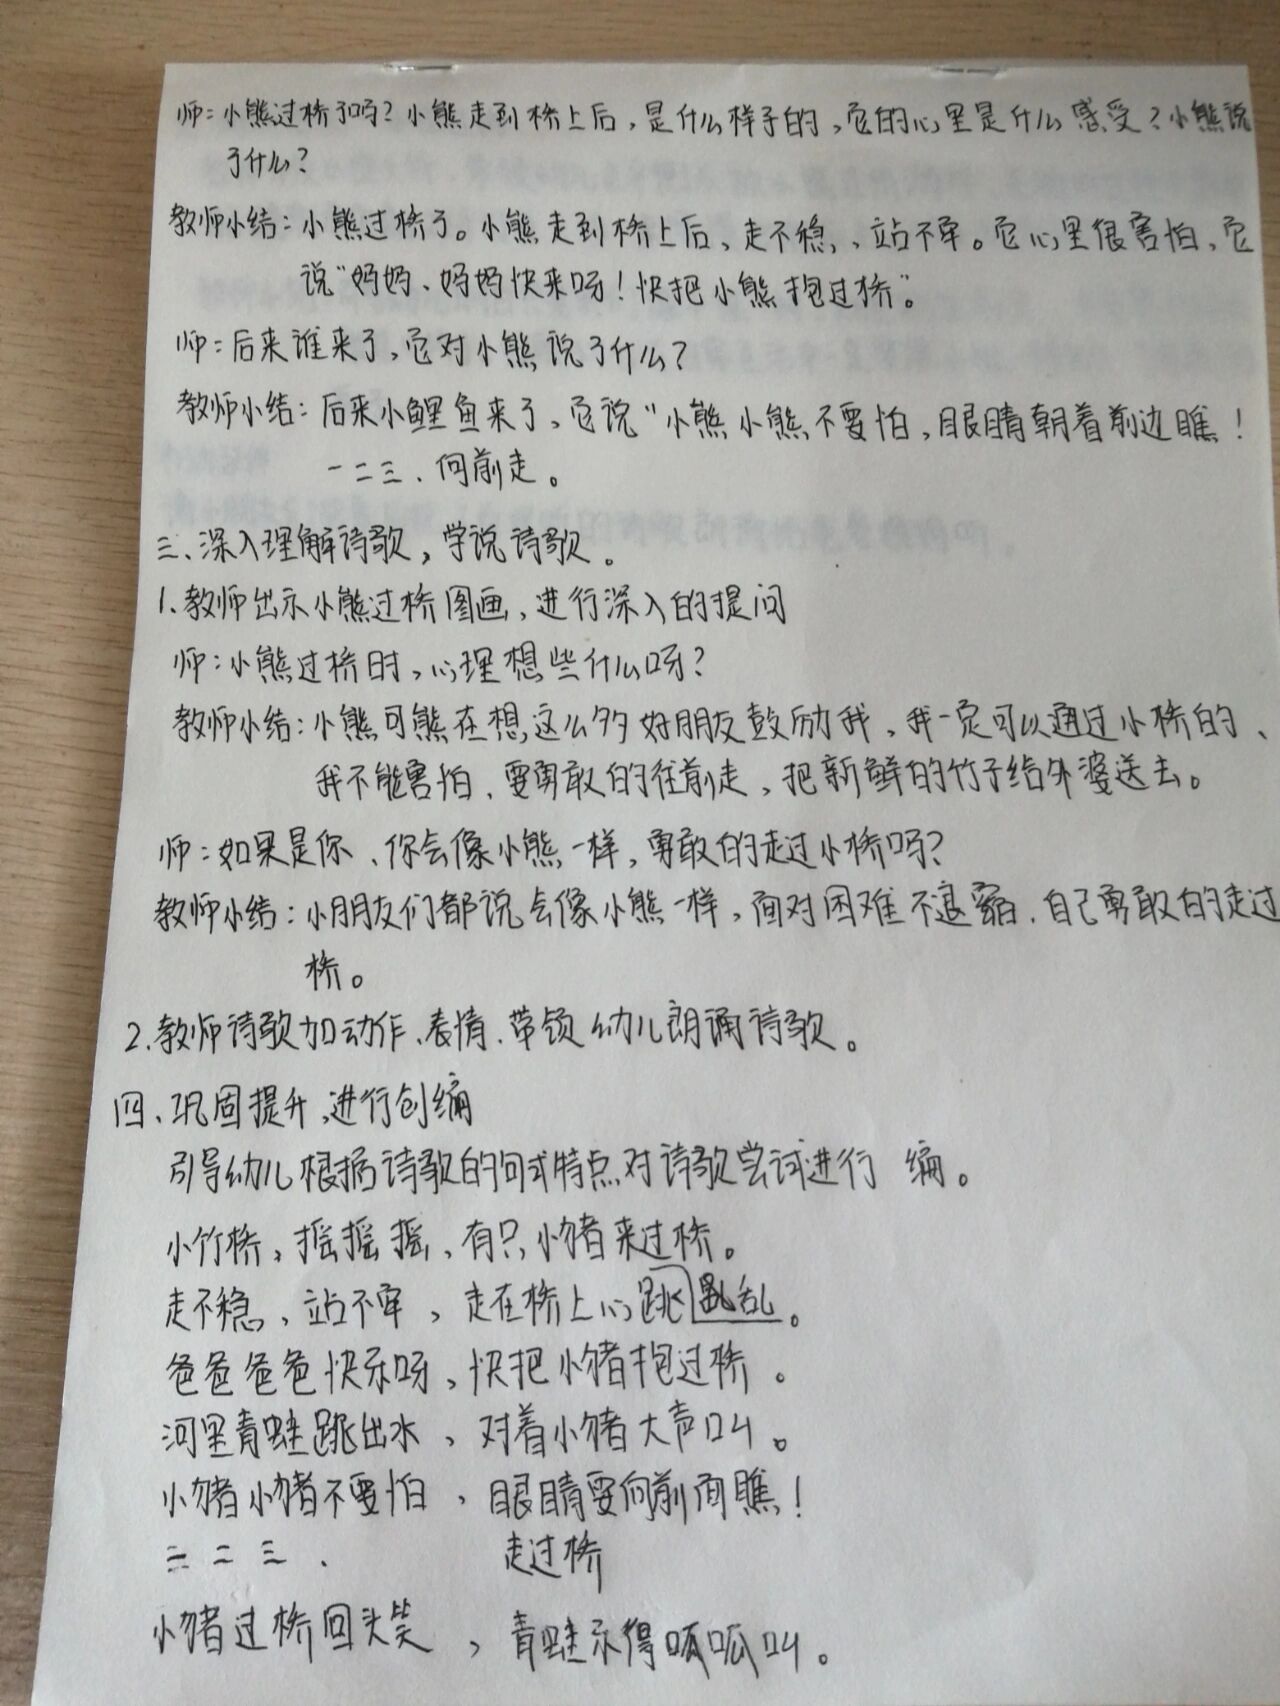 师：小熊过桥了吗？小熊走到桥上后，是什么样子的，它的心里是什么感受？小熊说
了什么？
教师小结：小熊过桥了。小熊走到桥上后，走不稳，，站不牢。它心里很害怕，它
说“妈妈、妈妈快来呀！快把小熊抱过桥”。
师：后来谁来了，它对小熊说了什么？
教师小结：后来小鲤鱼来了，它说“小熊小熊不要怕，眼睛朝着前边瞧！
一二三、向前走。
三、深入理解诗歌，学说诗歌。
1、教师出示小熊过桥图画，进行深入的提问
师：小熊过桥时，心理想些什么呀？
教师小结：小熊可熊在想，这么多好朋友鼓励我，我一定可以通过小桥的、
我不能害怕、要勇敢的往前走，把新鲜的竹子给外婆送去。
师：如果是你、你会像小熊一样，勇敢的走过小桥吗？
教师小结：小朋友们都说会像小熊一样，面对困难不退缩、自己勇敢的走过
桥。
2、教师诗歌加动作、表情、带领幼儿朗诵诗歌。
四、巩固提升，进行创编
引导幼儿根据诗歌的句式特点对诗歌尝试进行 编。
小竹桥，摇摇摇、有只小猪来过桥。
走不稳，站不牢，走在桥上心跳乱。
爸爸爸爸快乐呀，快把小猪抱过桥。
河里青蛙跳出水，对着小猪大声叫。
小猪小猪不要怕，眼睛要向前面瞧！
二二三、 走过桥
小猪过桥回头笑，青蛙乐得呱呱叫。